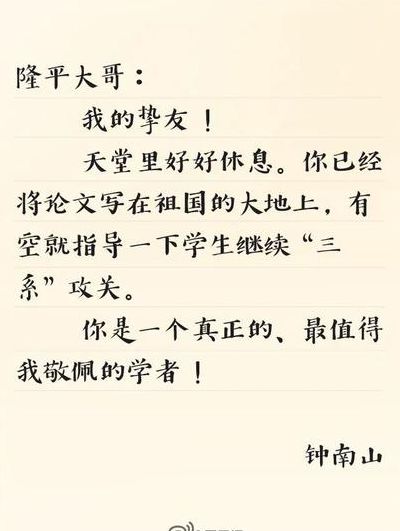 隆平大哥：
我的挚友！
天堂里好好休息。你已经
将论文写在祖国的大地上，有
空就指导一下学生继续“三
系”攻关。
你是一个真正的、最值得
我敬佩的学者！
钟南山